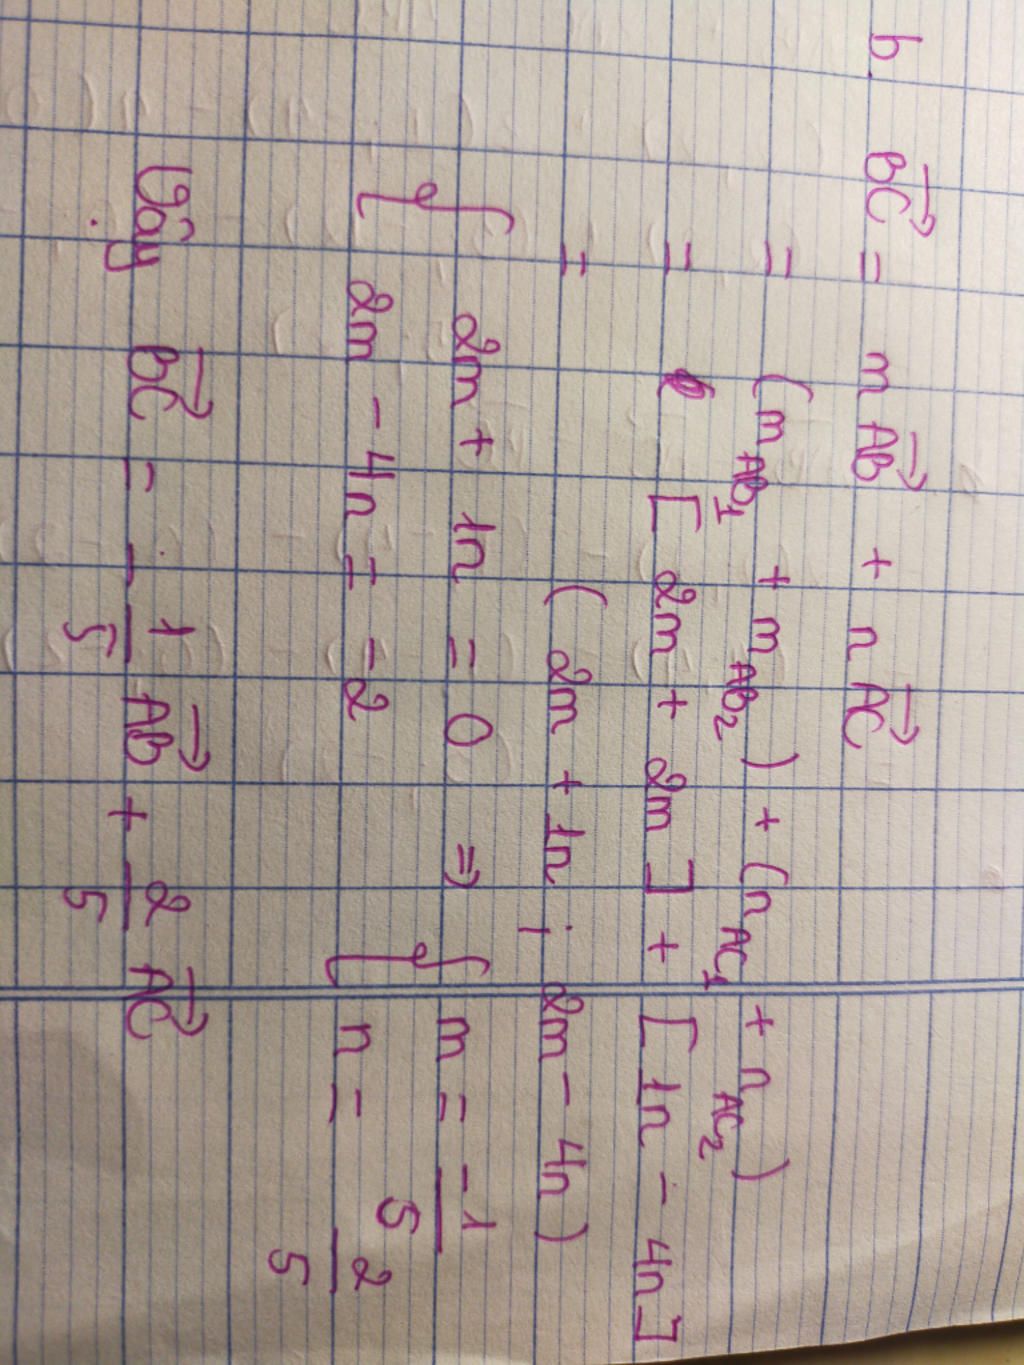 b. BC→ = m AB→ + n AC→
= (m AB₁ + m AB₂) + (n AC₁ + n AC₂)
= [2m + 2m] + [1n - 4n]
= (2m + 1n ; 2m - 4n)
{ 2m + 1n = 0 ⇒ { m = -1/5
2m - 4n = -2 n = 2/5
Vậy BC→ = - 1/5 AB→ + 2/5 AC→